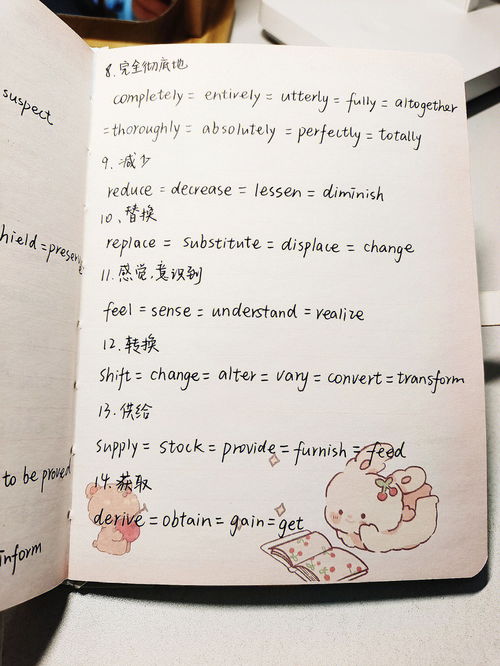 suspect
hield = preserve
to be proved
inform
8、完全彻底地
completely = entirely = utterly = fully = altogether
= thoroughly = absolutely = perfectly = totally
9、减少
reduce = decrease = lessen = diminish
10、替换
replace = substitute = displace = change
11、感觉,意识到
feel = sense = understand = realize
12、转换
shift = change = alter = vary = convert = transform
13、供给
supply = stock = provide = furnish = feed
14、获取
derive = obtain = gain = get